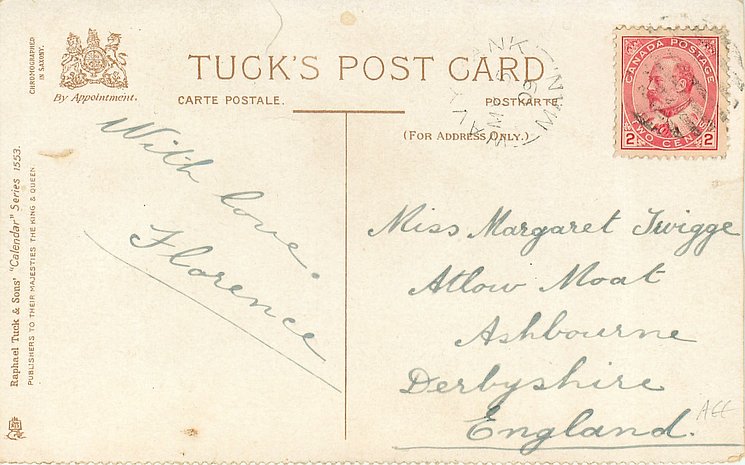 CHROMOGRAPHED
IN SAXONY.
By Appointment.
TUCK'S POST CARD
CARTE POSTALE.
POSTKARTE.
(FOR ADDRESS ONLY.)
CANADA POSTAGE
2 2
TWO CENTS
Raphael Tuck & Sons' "Calendar" Series 1553.
PUBLISHERS TO THEIR MAJESTIES THE KING & QUEEN
With love.
Florence
Miss Margaret Twigge
Atlow Moat
Ashbourne
Derbyshire
England.